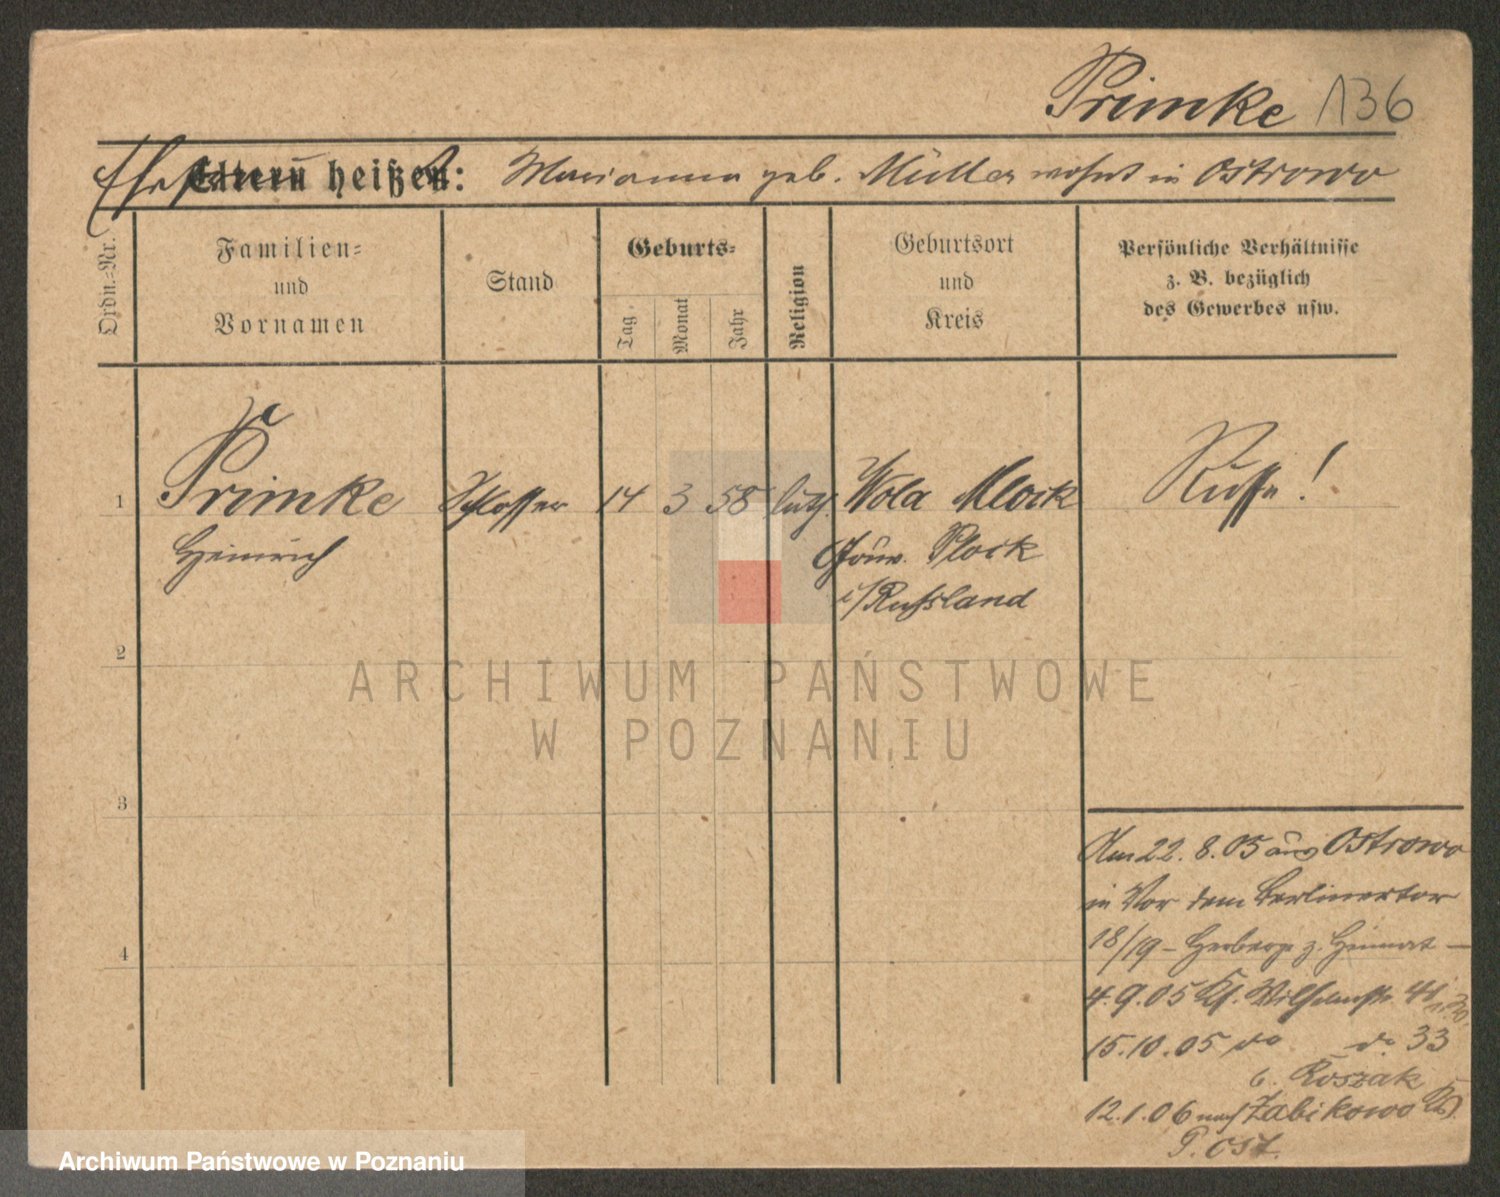 Primke 136
Ehefrau heißt: Marianna geb. Müller wohnt in Ostrowo
Ordn.-Nr.
Familien-
und
Vornamen
Stand
Geburts-
Tag
Monat
Jahr
Religion
Geburtsort
und
Kreis
Persönliche Verhältnisse
z. B. bezüglich
des Gewerbes usw.
1 Primke Schlosser 14 3 58 luth. Wola Mlock Russe!
Heinrich Gouv. Plock
i/Russland
2
3
4
Am 22.8.05 aus Ostrowo
in Vor dem Berlinertor
18/19 - Herberge z. Heimat -
4.9.05 Kl. Wilhelmstr.
15.10.05 do do 33
b. Koszak
12.1.06 nach Zabikowo Kr.
P. Ost.
ARCHIWUM PAŃSTWOWE
W POZNANIU
Archiwum Państwowe w Poznaniu